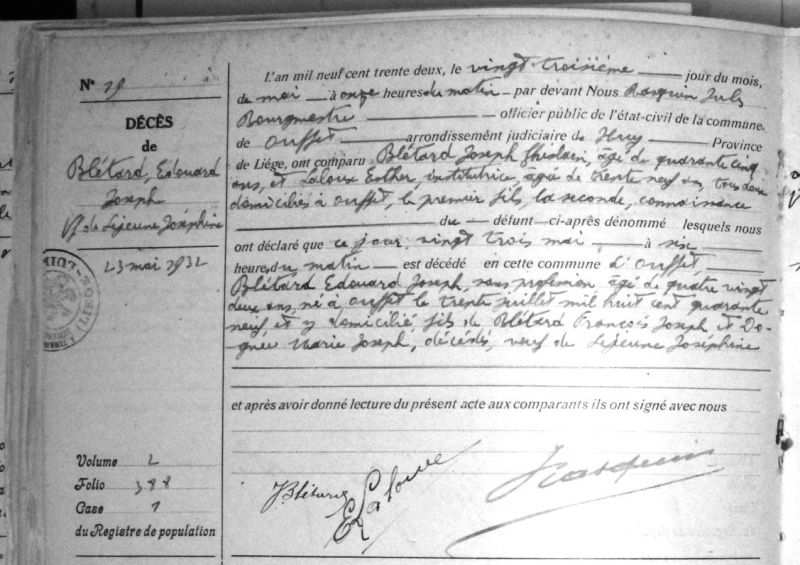 N° 19
DÉCÈS
de
Blétard, Edouard
Joseph
Vf de Lejeune Joséphine
23 mai 1932
Volume 2
Folio 388
Case 1
du Registre de population
L'an mil neuf cent trente deux, le vingt troisième jour du mois,
de mai à onze heures du matin - par devant Nous Rasquin Jules
Bourgmestre officier public de l'état-civil de la commune
de Ouffet arrondissement judiciaire de Huy Province
de Liége, ont comparu Blétard Joseph Ghislain, âgé de quarante cinq
ans, et Laloux Esther, institutrice, âgée de trente neuf ans, tous deux
domiciliés à Ouffet, le premier fils, la seconde, connaissance
du défunt ci-après dénommé lesquels nous
ont déclaré que ce jour, vingt trois mai à six
heures du matin est décédé en cette commune d'Ouffet
Blétard Edouard Joseph, sans profession, âgé de quatre vingt
deux ans, né à Ouffet le trente juillet mil huit cent quarante
neuf et y domicilié, fils de Blétard François Joseph et Do-
gnée Marie Joseph, décédés, veuf de Lejeune Joséphine
et après avoir donné lecture du présent acte aux comparants ils ont signé avec nous
J Blétard
E Laloux
J Rasquin